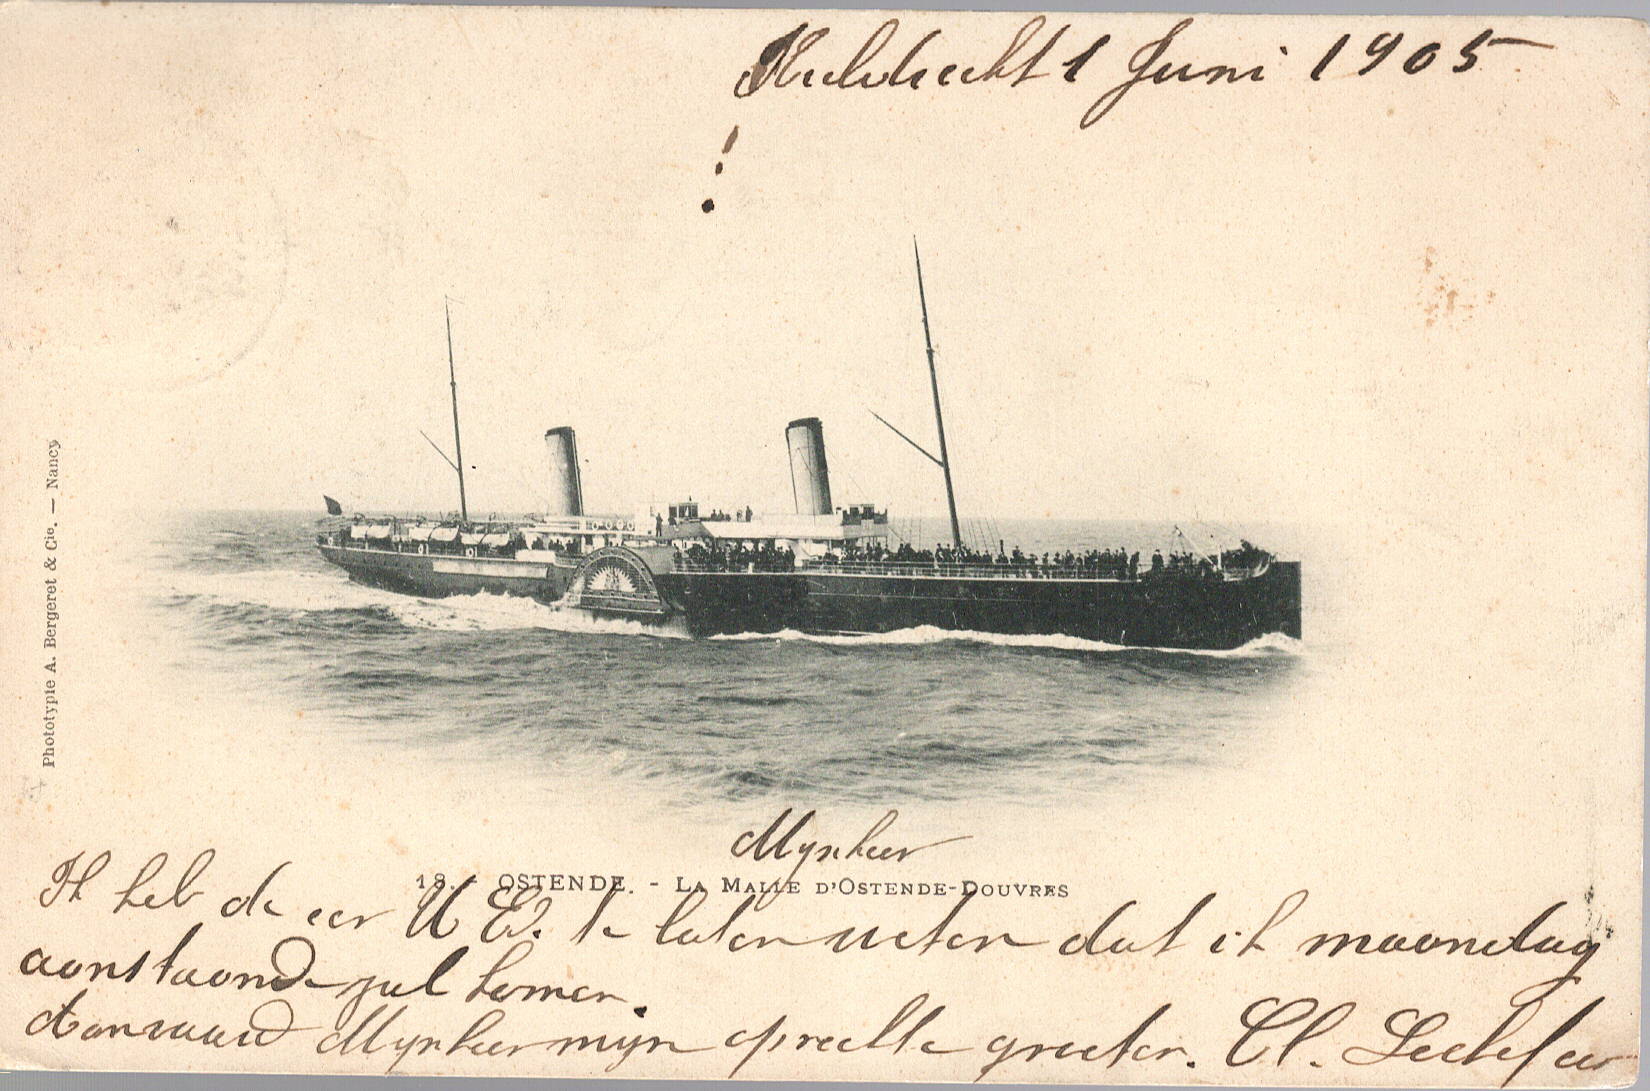 Kieldrecht 1 Juni 1905
!
Phototypie A. Bergeret & Cie. — Nancy
Mynheer
18. OSTENDE. - LA MALLE D'OSTENDE-DOUVRES
Ik heb de eer U Ed. te laten weten dat ik maandag
aanstaande zal komen.
Aanvaard Mynheer mijn oprechte groeten. Cl.